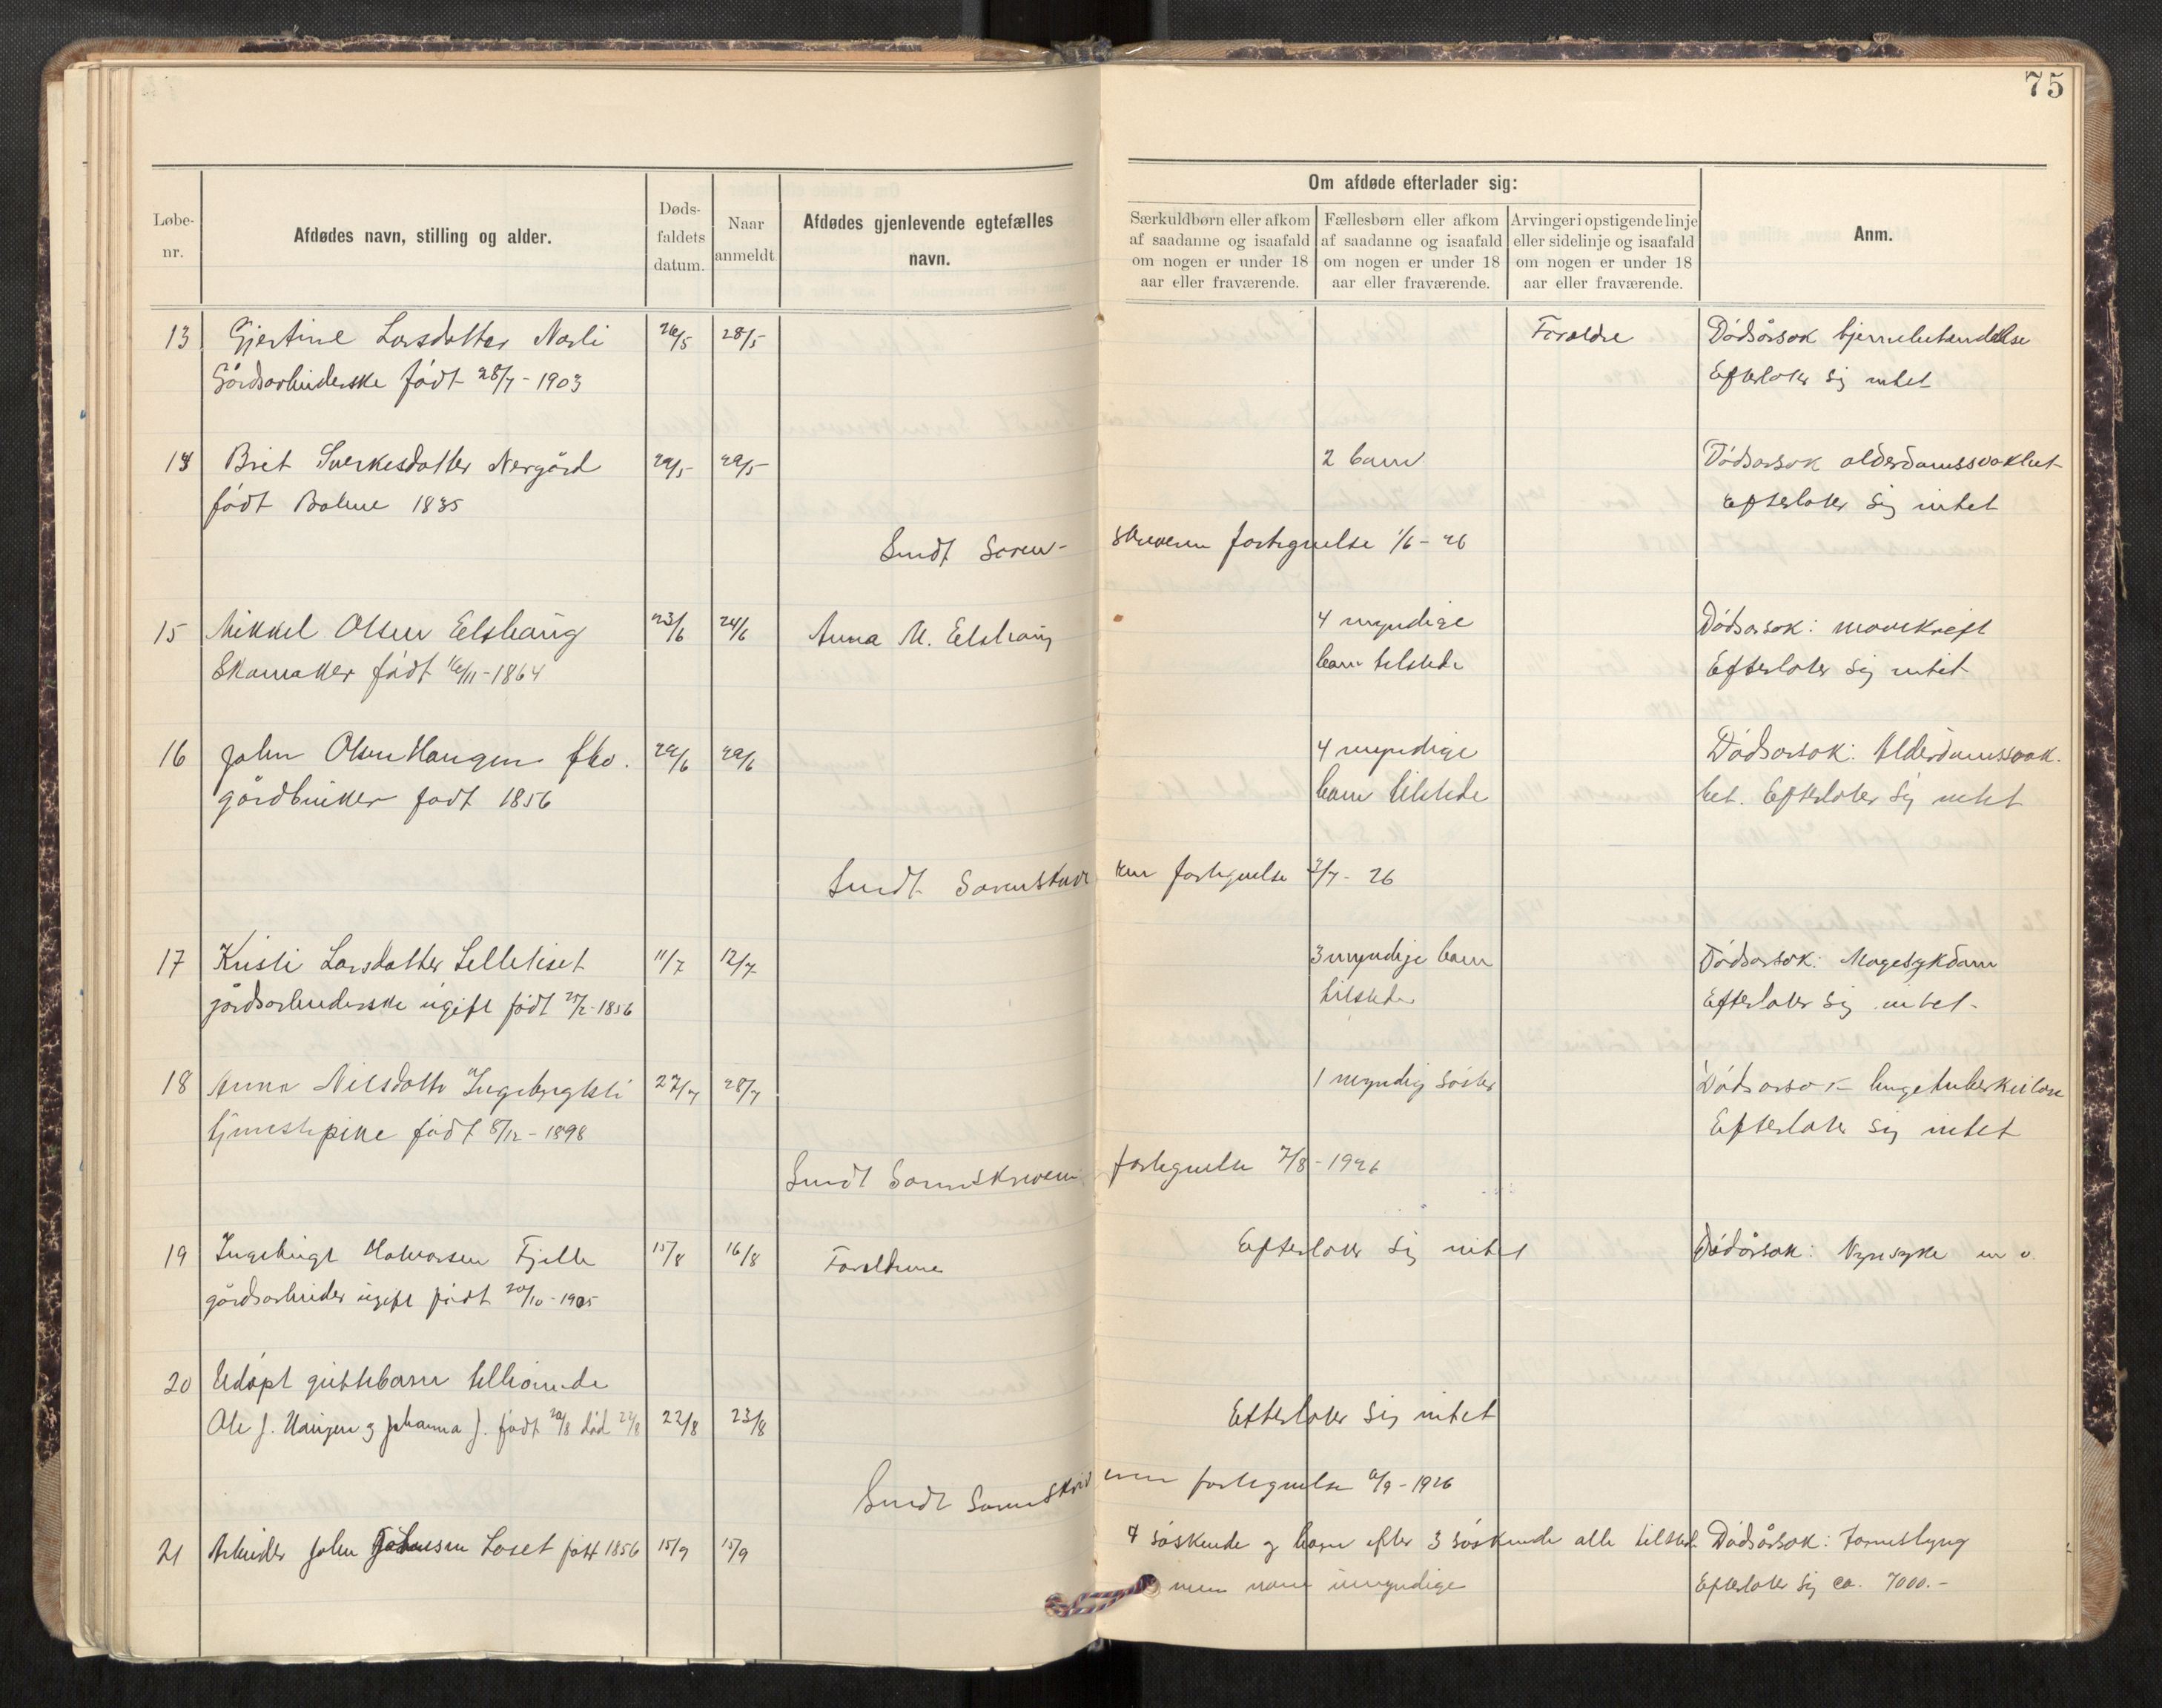 75
Løbe-
nr.
Afdødes navn, stilling og alder.
Døds-
faldets
datum.
Naar
anmeldt.
Afdødes gjenlevende egtefælles
navn.
Om afdøde efterlader sig:
Særkuldbørn eller afkom
af saadanne og isaafald
om nogen er under 18
aar eller fraværende.
Fællesbørn eller afkom
af saadanne og isaafald
om nogen er under 18
aar eller fraværende.
Arvinger i opstigende linje
eller sidelinje og isaafald
om nogen er under 18
aar eller fraværende.
Anm.
13 Gjertine Larsdatter Narli 26/5 28/5 Foreldre Dödsårsak hjernebetendelse
Gårdsarbeiderske födt 28/7-1903 Efterlater sig intet
14 Brit Sverkesdatter Nergård 29/5 29/5 2 barn Dödsarsak alderdomssvakhet
födt Bolme 1835 Efterlater sig intet
Sendt Soren- skriveren fortegnelse 1/6-26
15 Mikkel Olsen Elshaug 23/6 24/6 Anna M. Elshaug 4 myndige Dödsarsak: mavekreft
Skomaker födt 16/11-1864 barn tilstede Efterlater sig intet
16 John Olsen Haugen fho. 29/6 29/6 4 myndige Dödsarsak: Alderdomssvak-
gårdbruker födt 1856 barn tilstede het. Efterlater sig intet
Sendt Sorenskriveren fortegnelse 2/7-26
17 Kristi Larsdatter Lilleliset 11/7 12/7 3 myndige barn Dödsarsak: Magesykdom
gårdsarbeiderske ugift födt 25/2-1856 tilstede Efterlater sig intet-
18 Anna Nilsdatter Ingebrigtsli 27/7 28/7 1 myndig söster Dödsarsak lungetuberkulose
tjenestepike födt 8/12-1898 Efterlater sig intet
Sendt Sorenskriveren fortegnelse 2/8-1926
19 Ingebrigt Halvorsen Fjelle 15/8 16/8 Foreldrene Efterlater sig intet Dödårsak: Nyresyke m v.
gårdsarbeider ugift födt 20/10-1905
20 Udöpt guttebarn tilhörende
Ole J. Haugen og Johanna J. födt 20/8 död 22/8 22/8 23/8 Efterlater sig intet
Sendt Sorenskriveren fortegnelse /9-1926
21 Arbeider John Johnsen Loset födt 1856 15/9 15/9 4 söskende og barn efter 3 söskende alle tilsted. Dödsårsak: Tarmslyng
men nove umyndige Efterlater sig ca. 7000.-